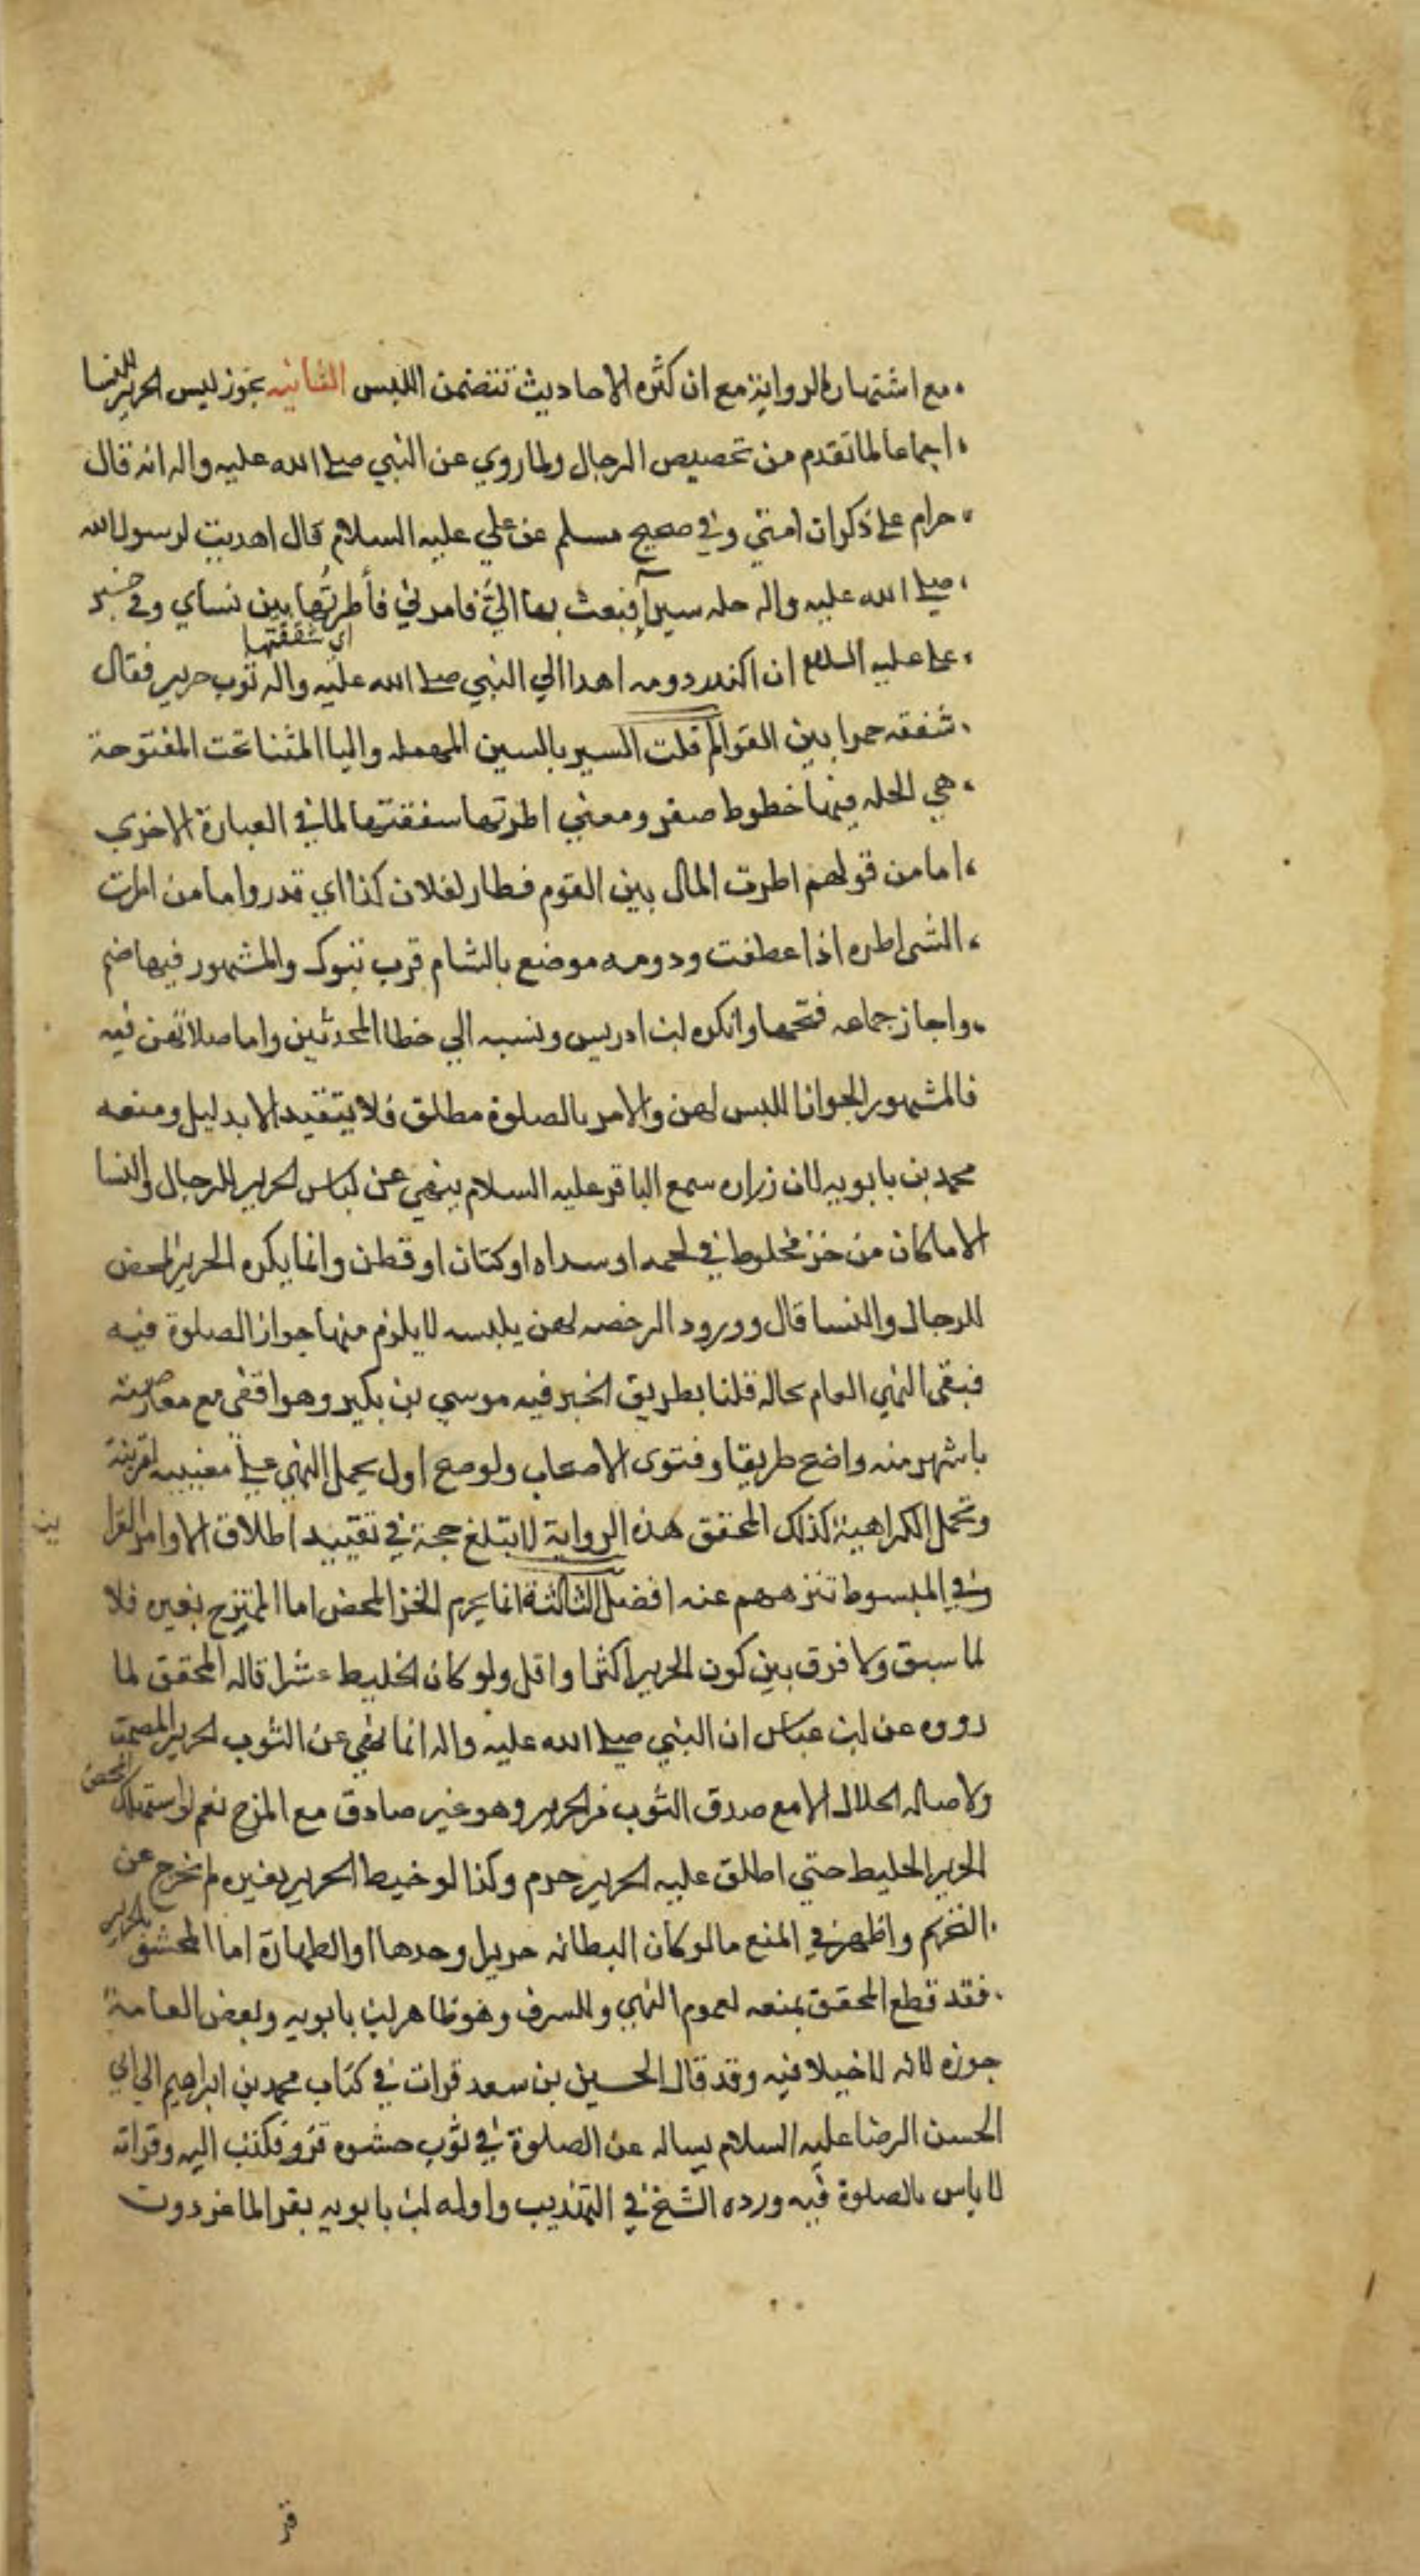 مع اشتهار الرواية مع ان كثره الاحاديث تتضمن اللبس الثانيه يجوز لبس الحرير للنسا
اجماعا لما تقدم من تخصيص الرجال ولما روي عن النبي صلى الله عليه واله انه قال
حرام على ذكران امتي وفي صحيح مسلم عن علي عليه السلام قال اهديت لرسول الله
صلى الله عليه واله حله سيرآ فبعث بها اليّ فامرني فأطرتُها بين نساي وفي خبر
اي شققتها
على عليه السلام ان اكندر دومه اهدا الي النبي صلى الله عليه واله ثوب حرير فقال
شققه خمرا بين الفواطم قلت السير بالسين المهمله واليا المثناة تحت المفتوحة
هي الحله فيها خطوط صفر ومعني اطرتها شققتها لما في العبارة الاخري
اما من قولهم اطرت المال بين القوم فطار لفلان كذا اي قدر واما من اطرت
الشي اطره اذا عطفت ودومه موضع بالشام قرب تبوك والمشهور فيها ضم
واجاز جماعه فتحها وانكره ابن ادريس ونسبه الي خطا المحدثين واما صلاتهن فيه
فالمشهور الجواز اللبس لهن والامر بالصلوة مطلق فلا يتقيد الا بدليل ومنعه
محمد بن بابويه لان زراره سمع الباقر عليه السلام ينهي عن لباس الحرير للرجال والنسا
الا ما كان من خز مخلوط في لحمه او سداه او كتان او قطن وانما يكره الحرير المحض
للرجال والنسا قال وورود الرخصه لهن يلبسه لا يلزم منها جواز الصلوة فيه
فبقي النهي العام بحاله قلنا بطريق الخبر فيه موسي بن بكير وهو اقفي مع معارضته
باشهر منه واضع طريقا وفتوى الاصحاب ولو صح اول بحمل النهي على لقرينة
وتحمل الكراهية كذلك المحقق هذه الرواية لا تبلغ حجة في تقييد اطلاق الاوامر القرا
وفي المبسوط تنزههم عنه افضل الثالثة انما يحرم الخز المحض اما الممتزج بغيره فلا
لما سبق ولا فرق بين كون الحرير اكثر او اقل ولو كان الخليط عشرا قاله المحقق لما
رووه عن ابن عباس ان النبي صلى الله عليه واله انما نهي عن الثوب الحرير المصمت
المحض
ولاصاله الحلال الا مع صدق الثوب من الحرير وهو غير صادق مع المزج نعم لو استهلك
الحرير الخليط حتي اطلق عليه الحرير حرم وكذا لو خيط الحرير بغيره لم يخرج عن
التحريم واظهر في المنع ما لو كان البطانه حرير وحدها او الطهارة اما المحشو بالحرير
فقد قطع المحقق بمنعه لعموم النهي وللسرف وهو ظاهر ابن بابويه وبعض العامة
جوزه لانه لا خيلا فيه وقد قال الحسين بن سعد قرات في كتاب محمد بن ابراهيم الي ابي
الحسن الرضا عليه السلام يساله عن الصلوة في ثوب حشوه قزو فكتب اليه وقراته
لا باس بالصلوة فيه ورده الشيخ في التهذيب واوله ابن بابويه بقز الماعز دون
قز